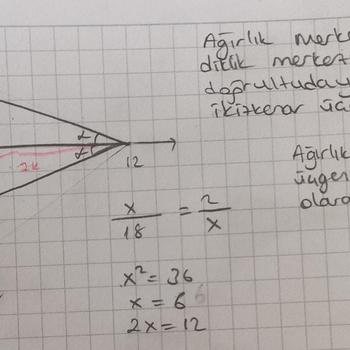 Ağırlık merke
diklik merkez
doğrultuday
ikizkenar üç
α
α
2x
12
Ağırlık
üçgen
olara
x/18 = 2/x
x² = 36
x = 6
2x = 12